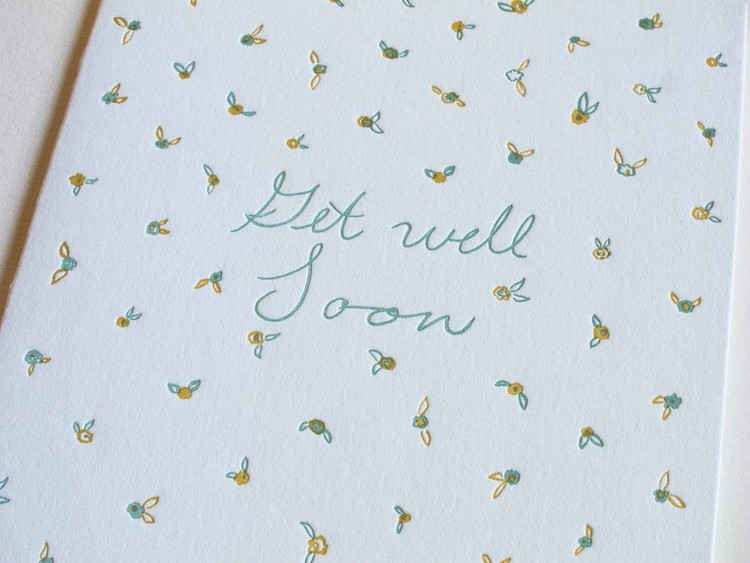 Get well
Soon